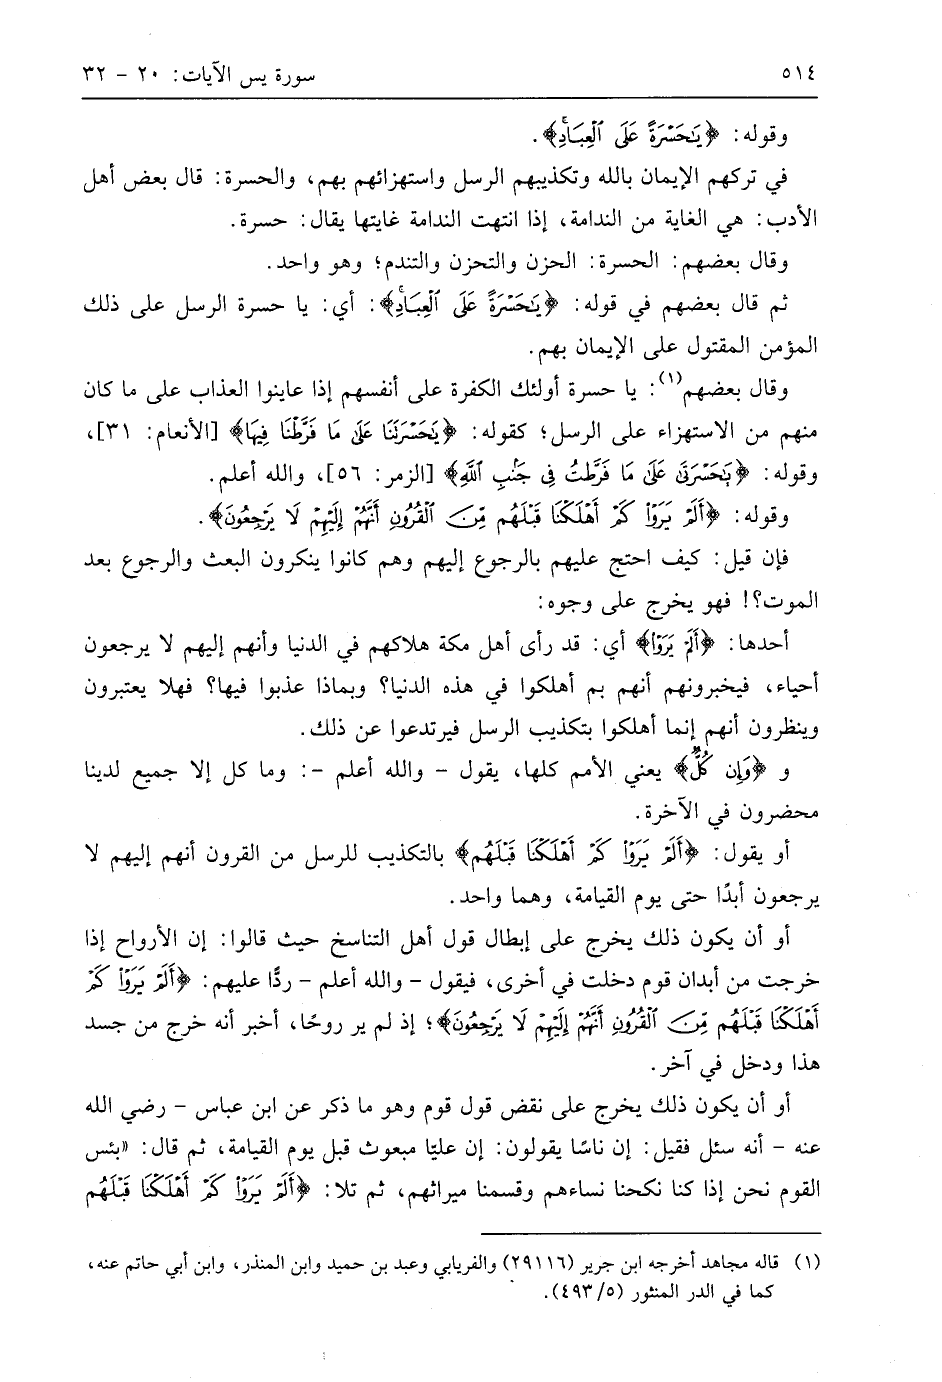 ٥١٤ سورة يس الآيات: ٢٠ - ٣٢
وقوله: ﴿يَٰحَسْرَةً عَلَى ٱلْعِبَادِ﴾.
في تركهم الإيمان بالله وتكذيبهم الرسل واستهزائهم بهم، والحسرة: قال بعض أهل
الأدب: هي الغاية من الندامة، إذا انتهت الندامة غايتها يقال: حسرة.
وقال بعضهم: الحسرة: الحزن والتحزن والتندم؛ وهو واحد.
ثم قال بعضهم في قوله: ﴿يَٰحَسْرَةً عَلَى ٱلْعِبَادِ﴾: أي: يا حسرة الرسل على ذلك
المؤمن المقتول على الإيمان بهم.
وقال بعضهم(١): يا حسرة أولئك الكفرة على أنفسهم إذا عاينوا العذاب على ما كان
منهم من الاستهزاء على الرسل؛ كقوله: ﴿يَٰحَسْرَتَنَا عَلَىٰ مَا فَرَّطْنَا فِيهَا﴾ [الأنعام: ٣١]،
وقوله: ﴿بَٰحَسْرَتَىٰ عَلَىٰ مَا فَرَّطتُ فِى جَنۢبِ ٱللَّهِ﴾ [الزمر: ٥٦]، والله أعلم.
وقوله: ﴿أَلَمْ يَرَوْا۟ كَمْ أَهْلَكْنَا قَبْلَهُم مِّنَ ٱلْقُرُونِ أَنَّهُمْ إِلَيْهِمْ لَا يَرْجِعُونَ﴾.
فإن قيل: كيف احتج عليهم بالرجوع إليهم وهم كانوا ينكرون البعث والرجوع بعد
الموت؟! فهو يخرج على وجوه:
أحدها: ﴿أَلَمْ يَرَوْا۟﴾ أي: قد رأى أهل مكة هلاكهم في الدنيا وأنهم إليهم لا يرجعون
أحياء، فيخبرونهم أنهم بم أهلكوا في هذه الدنيا؟ وبماذا عذبوا فيها؟ فهلا يعتبرون
وينظرون أنهم إنما أهلكوا بتكذيب الرسل فيرتدعوا عن ذلك.
و ﴿وَإِن كُلٌّ﴾ يعني الأمم كلها، يقول - والله أعلم -: وما كل إلا جميع لدينا
محضرون في الآخرة.
أو يقول: ﴿أَلَمْ يَرَوْا۟ كَمْ أَهْلَكْنَا قَبْلَهُم﴾ بالتكذيب للرسل من القرون أنهم إليهم لا
يرجعون أبدًا حتى يوم القيامة، وهما واحد.
أو أن يكون ذلك يخرج على إبطال قول أهل التناسخ حيث قالوا: إن الأرواح إذا
خرجت من أبدان قوم دخلت في أخرى، فيقول - والله أعلم - ردًّا عليهم: ﴿أَلَمْ يَرَوْا۟ كَمْ
أَهْلَكْنَا قَبْلَهُم مِّنَ ٱلْقُرُونِ أَنَّهُمْ إِلَيْهِمْ لَا يَرْجِعُونَ﴾؛ إذ لم ير روحًا، أخبر أنه خرج من جسد
هذا ودخل في آخر.
أو أن يكون ذلك يخرج على نقض قول قوم وهو ما ذكر عن ابن عباس - رضي الله
عنه - أنه سئل فقيل: إن ناسًا يقولون: إن عليًا مبعوث قبل يوم القيامة، ثم قال: «بئس
القوم نحن إذا كنا نكحنا نساءهم وقسمنا ميراثهم، ثم تلا: ﴿أَلَمْ يَرَوْا۟ كَمْ أَهْلَكْنَا قَبْلَهُم
(١) قاله مجاهد أخرجه ابن جرير (٢٩١١٦) والفريابي وعبد بن حميد وابن المنذر، وابن أبي حاتم عنه،
كما في الدر المنثور (٤٩٣/٥).